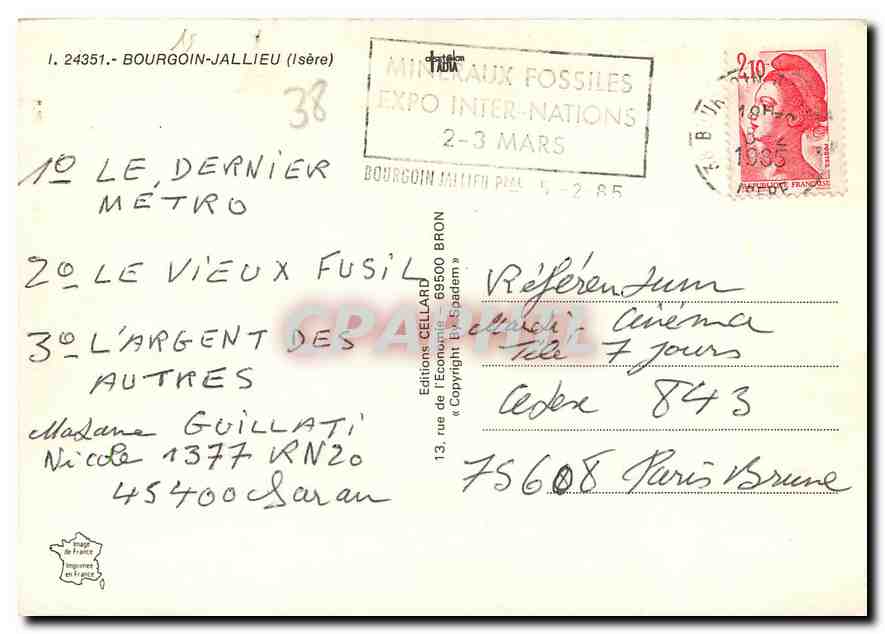 I. 24351.- BOURGOIN-JALLIEU (Isère)
38
MINERAUX FOSSILES
EXPO INTER-NATIONS
2-3 MARS
BOURGOIN JALLIEU PPAL 5-2 85
2,10
18H
1985
ISERE
POSTES
REPUBLIQUE FRANÇAISE
1º LE DERNIER
MÉTRO
2º LE VIEUX FUSIL
3º L'ARGENT DES
AUTRES
Madame GUILLATI
Nicole 1377 RN20
45400 Saran
Editions CELLARD
13, rue de l'Economie - 69500 BRON
« Copyright By Spadem »
Référendum
Mardi-Cinéma
Télé 7 jours
Cedex 843
75608 Paris Brune
Image
de France
Imprimée
en France
CPARAMA